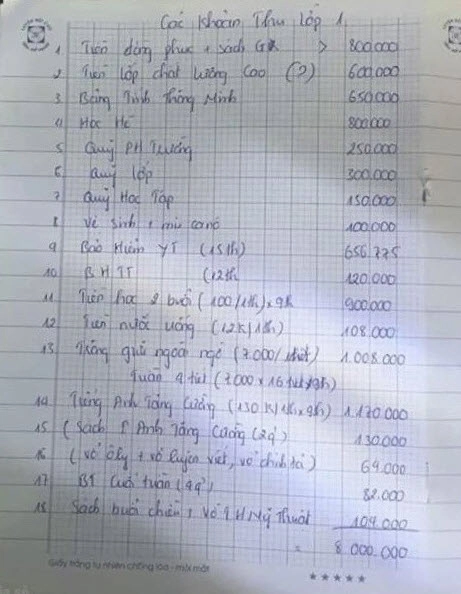 Các khoản Thu lớp 1
1 Tiền đồng phục + sách GK > 800.000
2 Tiền lớp chất lượng cao (?) 600.000
3 Bảng Tính Thông Minh 650.000
4 Học Hè 800.000
5 Quỹ PH Trường 250.000
6 Quỹ lớp 300.000
7 Quỹ Học Tập 150.000
8 Vệ sinh + mũ ca nô 100.000
9 Bảo Hiểm YT (15th) 656.775
10 BHTT (12th 120.000
11 Tiền học 2 buổi (100/1th) x 9th 900.000
12 Tiền nước uống (12K/1th) 108.000
13 Trông giữ ngoài giờ (7.000/ tiết) 1.008.000
tuần 4 tiết (7.000 x 16 tiết x 9th)
14 Tiếng Anh Tăng Cường (130K/1th x 9th) 1.170.000
15 (Sách T Anh Tăng Cường (2q) 130.000
16 (vở ôly + vở luyện viết, vở chính tả) 64.000
17 BT Cuối tuần (4q) 82.000
18 Sách buổi chiều + Vở TH Mỹ Thuật 104.000
= 8.000.000
Giấy trắng tự nhiên chống lóa - mỏi mắt
★★★★★